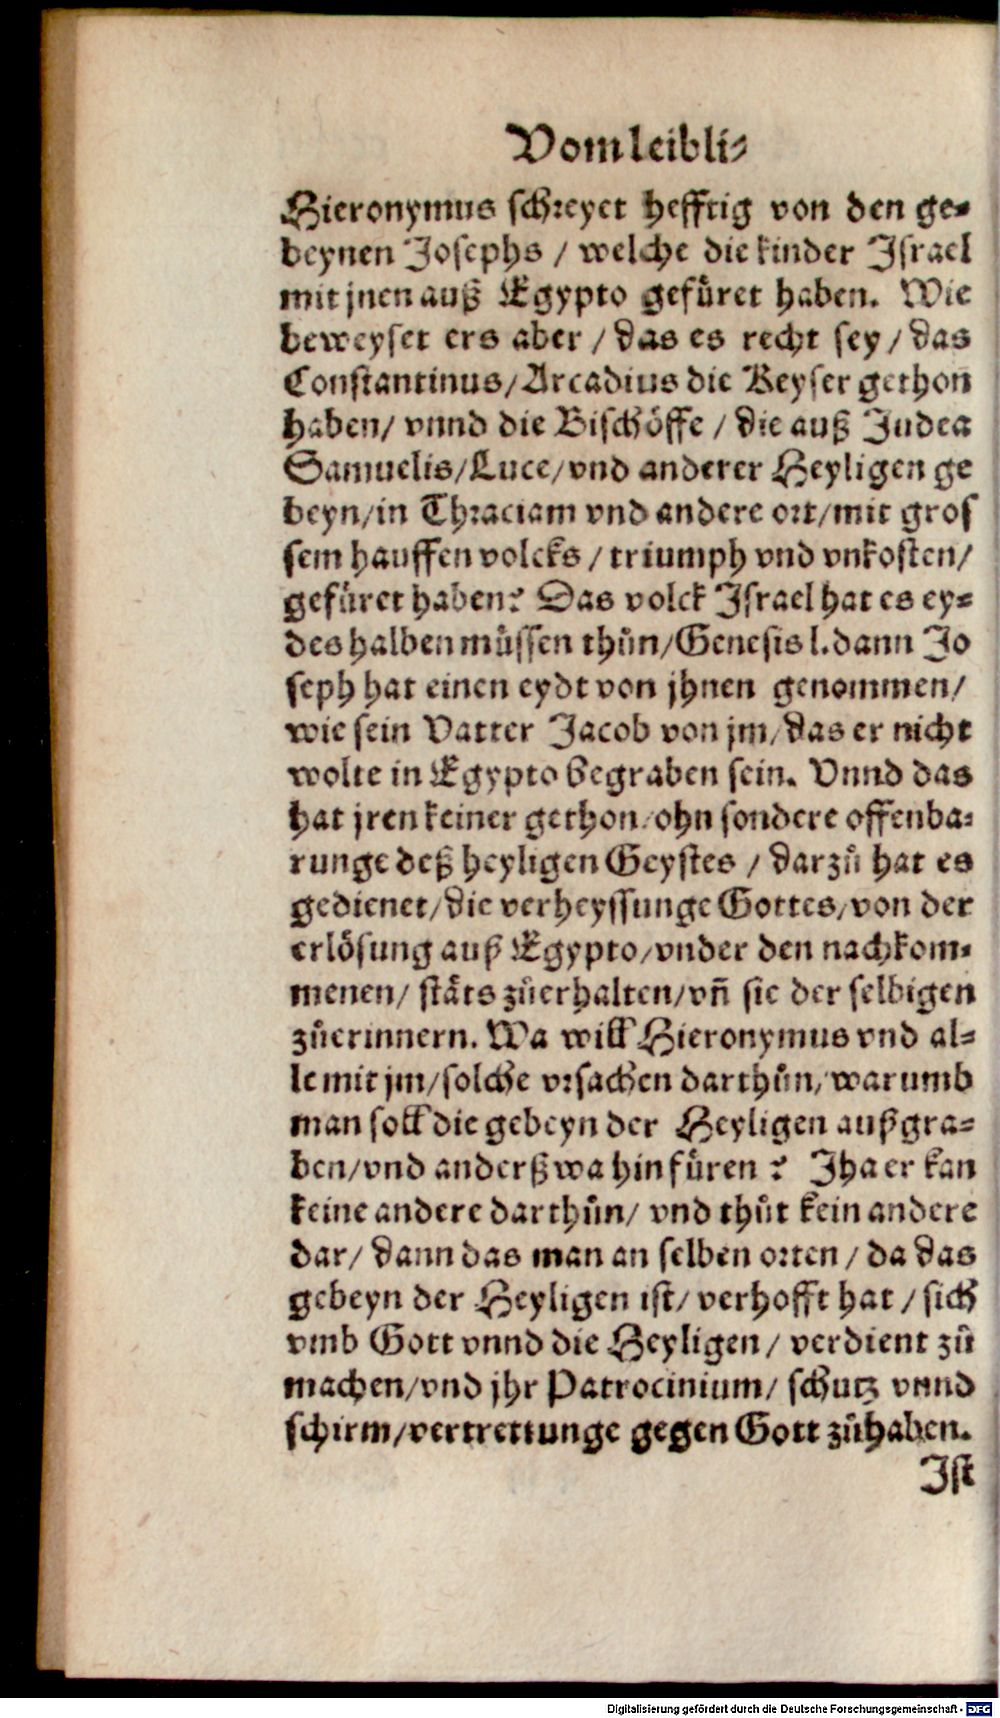 Vom leibli-
Hieronymus schreyet hefftig von den ge-
beynen Josephs / welche die kinder Israel
mit jnen auß Egypto gefüret haben. Wie
beweyset ers aber / das es recht sey / das
Constantinus/Arcadius die Keyser gethon
haben/ vnnd die Bischöffe / die auß Judea
Samuelis/Luce/vnd anderer Heyligen ge
beyn/in Thraciam vnd andere ort/mit gros
sem hauffen volcks / triumph vnd vnkosten/
gefüret haben? Das volck Israel hat es ey-
des halben müssen thůn/Genesis l. dann Jo
seph hat einen eydt von jhnen genommen/
wie sein Vatter Jacob von jm/das er nicht
wolte in Egypto begraben sein. Vnnd das
hat jren keiner gethon/ohn sondere offenba-
runge deß heyligen Geystes / darzů hat es
gedienet/die verheyssunge Gottes/von der
erlösung auß Egypto/vnder den nachkom-
menen/ stäts zůerhalten/vñ sie der selbigen
zůerinnern. Wa will Hieronymus vnd al-
le mit jm/solche vrsachen darthůn/warumb
man soll die gebeyn der Heyligen außgra-
ben/vnd anderßwa hin füren ? Jha er kan
keine andere darthůn/ vnd thůt kein andere
dar/ dann das man an selben orten / da das
gebeyn der Heyligen ist/ verhofft hat / sich
vmb Gott vnnd die Heyligen/ verdient zů
machen/vnd jhr Patrocinium/ schutz vnnd
schirm/vertrettunge gegen Gott zůhaben.
Ist
Digitalisierung gefördert durch die Deutsche Forschungsgemeinschaft - DFG